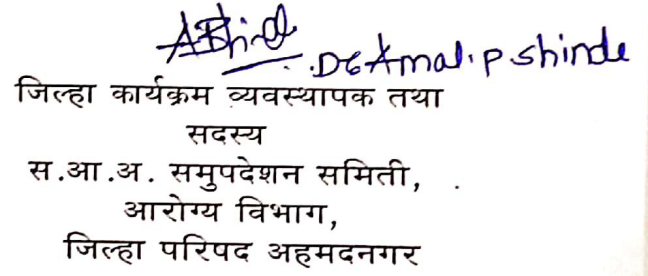 Dr Amol. P. Shinde
जिल्हा कार्यक्रम व्यवस्थापक तथा
सदस्य
स.आ.अ. समुपदेशन समिती,
आरोग्य विभाग,
जिल्हा परिषद अहमदनगर